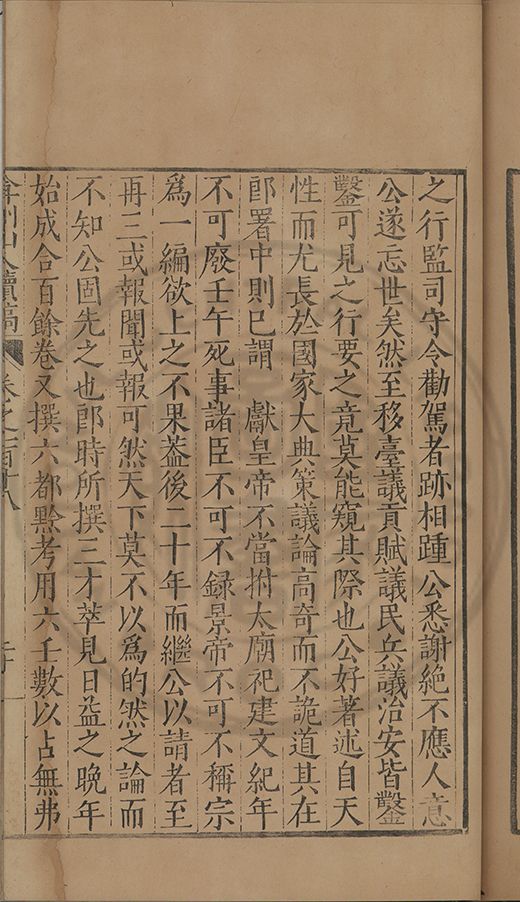 之行監司守令勸駕者跡相踵公悉謝絕不應人意
公遂忘世矣然至移臺議貢賦議民兵議治安皆鑿
鑿可見之行要之竟莫能窺其際也公好著述自天
性而尤長於國家大典策議論高奇而不詭道其在
郎署中則已謂　獻皇帝不當祔太廟祀建文紀年
不可廢壬午死事諸臣不可不録景帝不可不稱宗
為一編欲上之不果蓋後二十年而繼公以請者至
再三或報聞或報可然天下莫不以為的然之論而
不知公固先之也郎時所撰三才萃見日益之晚年
始成合百餘卷又撰六都黔考用六壬數以占無弗
弇州山人續稿　卷之一百十八